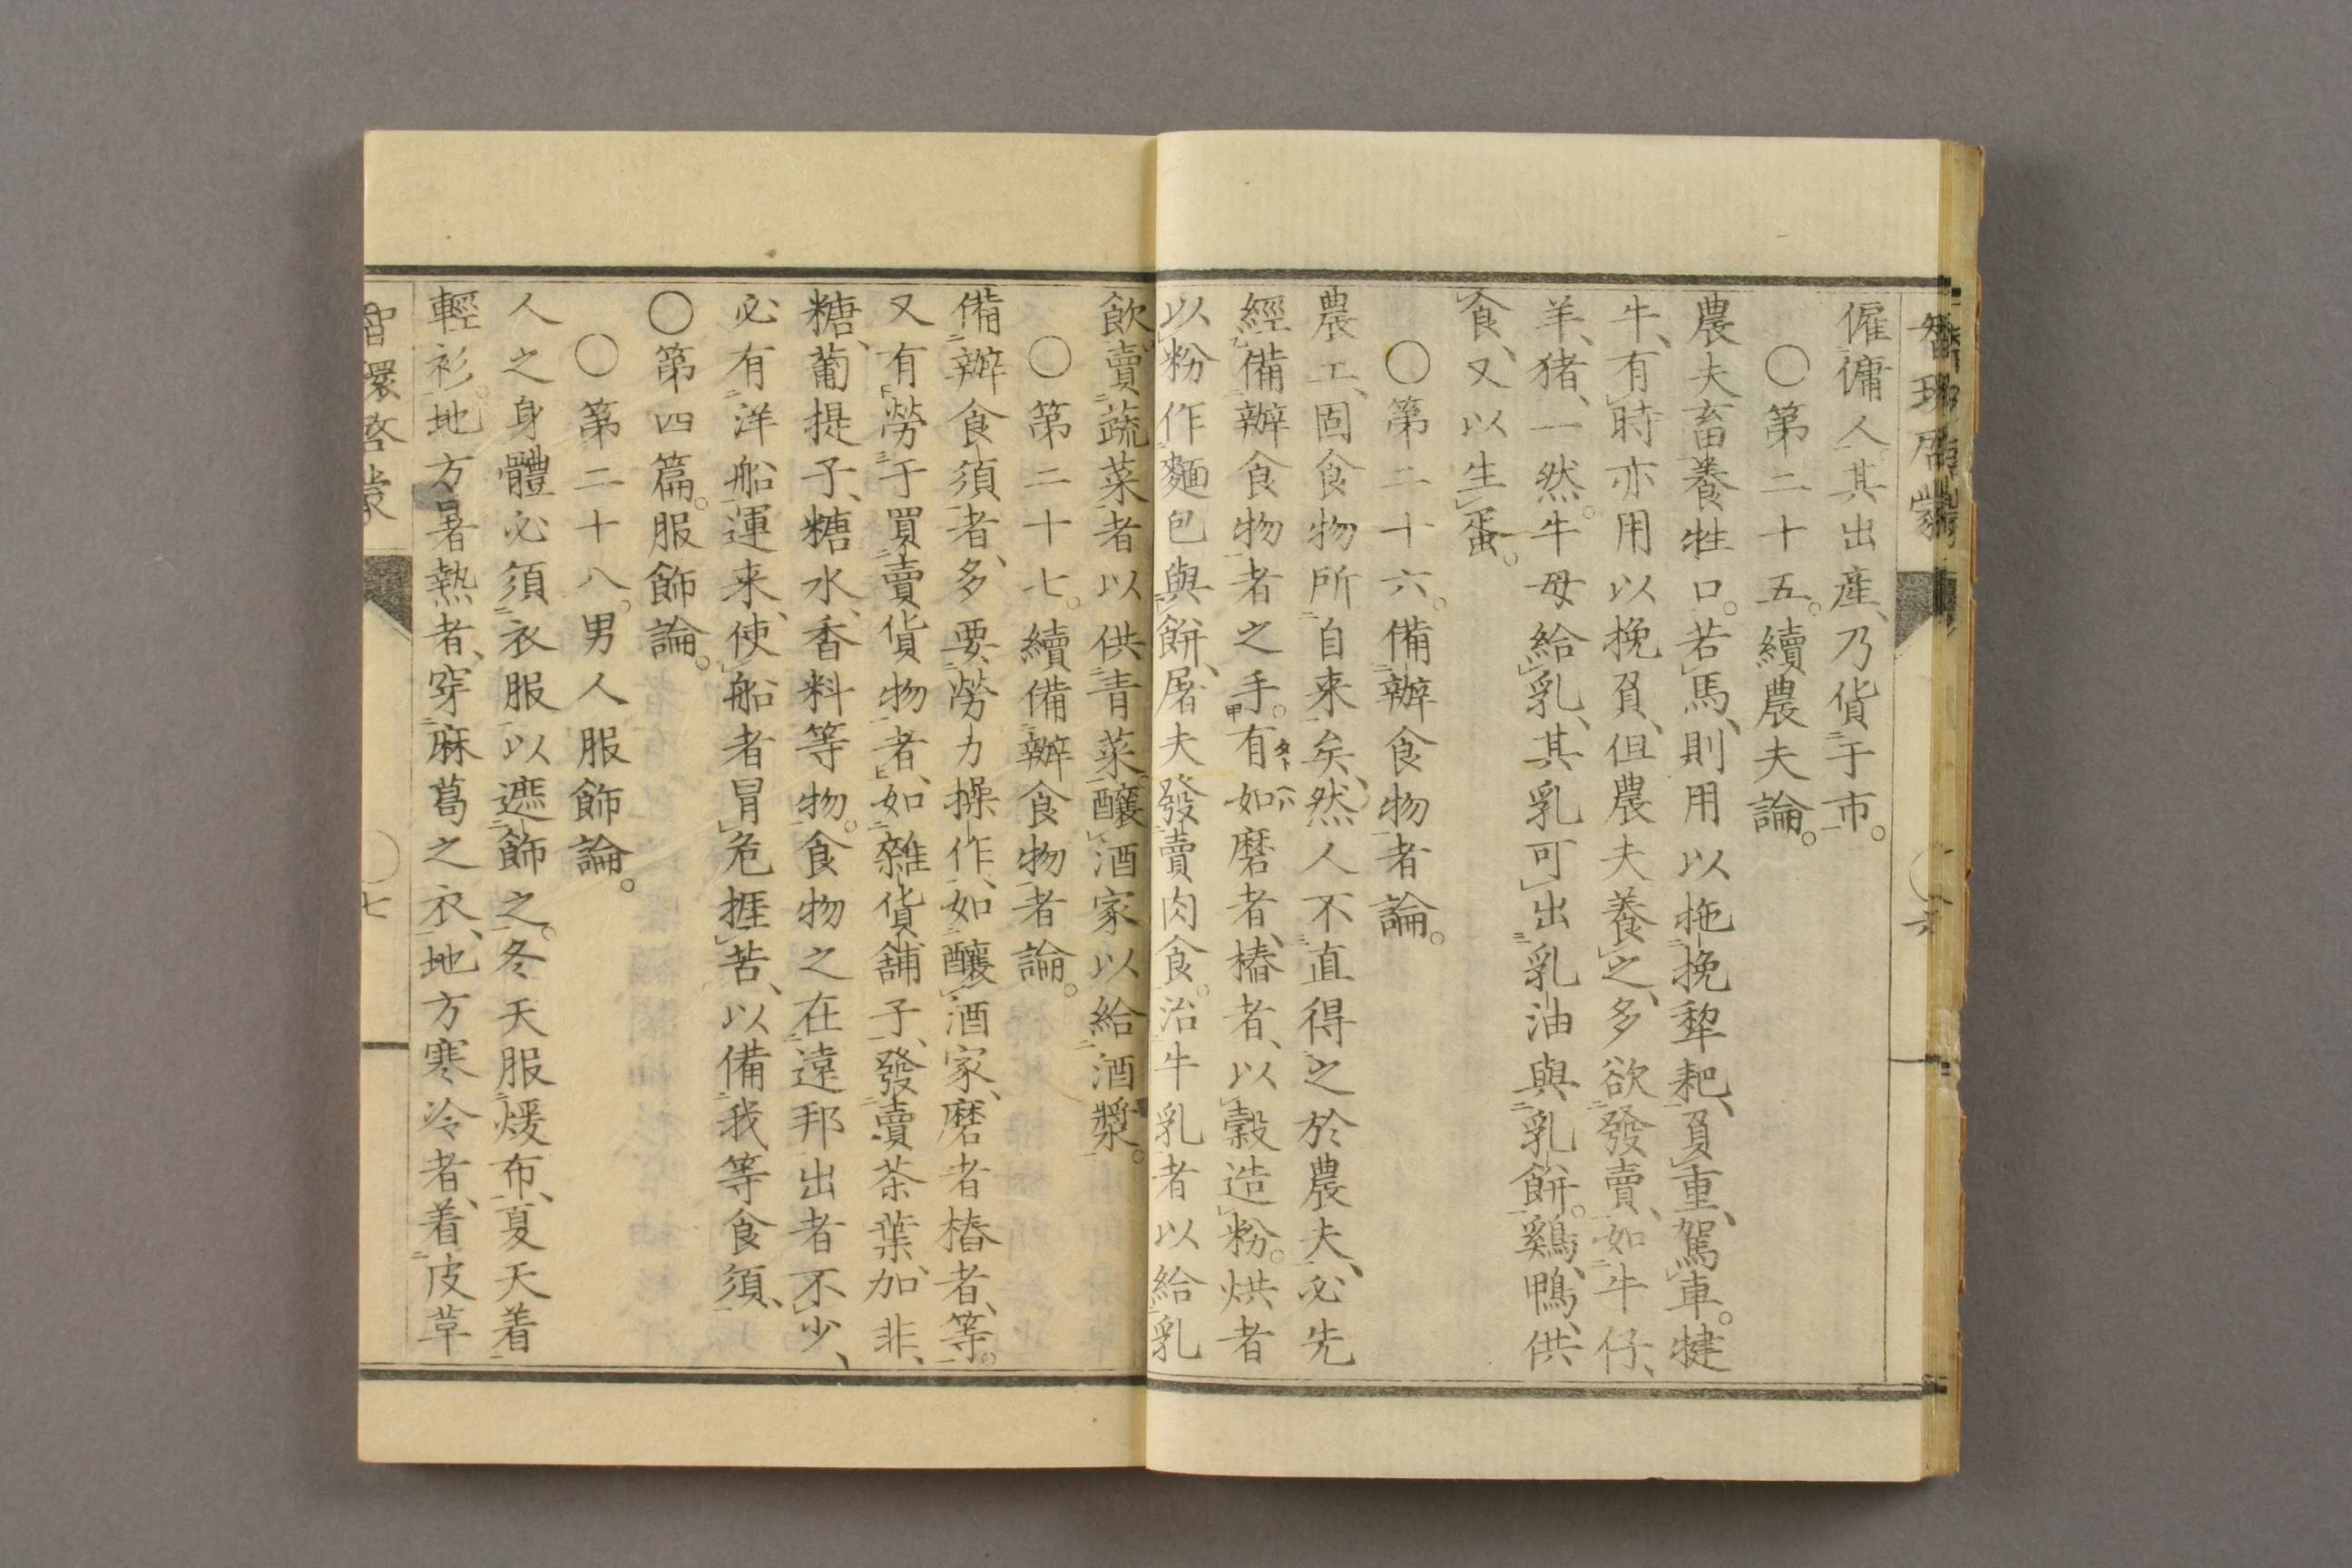 智環啓蒙
僱傭人其出産、乃貨于市。
〇第二十五。續農夫論。
農夫畜養牲口。若馬、則用以拖挽犂耙、負重、駕車。犍
牛、有時亦用以挽負、但農夫養之、多欲發賣、如牛仔、
羊、猪、一然。牛母給乳、其乳可出乳油與乳餅。鷄、鴨、供
食、又以生蛋。
〇第二十六。備辦食物者論。
農工、固食物所自来矣、然人不直得之於農夫、必先
經備辦食物者之手。有如磨者、樁者、以穀造粉。烘者
以粉作麵包與餅、屠夫發賣肉食。治牛乳者以給乳
飲、賣蔬菜者以供青菜。釀酒家以給酒漿。
〇第二十七。續備辦食物者論。
備辦食須者、多要勞力操作、如釀酒家、磨者樁者、等。
又有勞于買賣貨物者、如雜貨舖子、發賣茶葉、加非、
糖、葡提子、糖水、香料等物。食物之在遠邦出者不少、
必有洋船運来、使船者冒危捱苦、以備我等食須、
〇第四篇。服飾論。
〇第二十八。男人服飾論。
人之身體必須衣服以遮飾之。冬天服煖布、夏天着
輕衫。地方暑熱者、穿麻葛之衣、地方寒冷者、着皮草
智環啓蒙
〇七